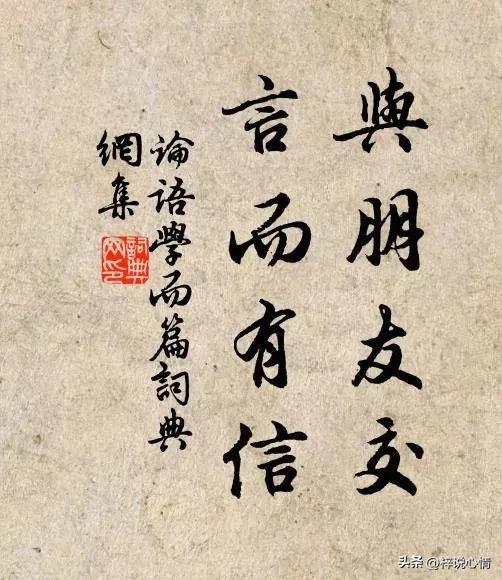 與朋友交
言而有信
論語學而篇詞典
網集
詞典
网印
头条 @梓说心情